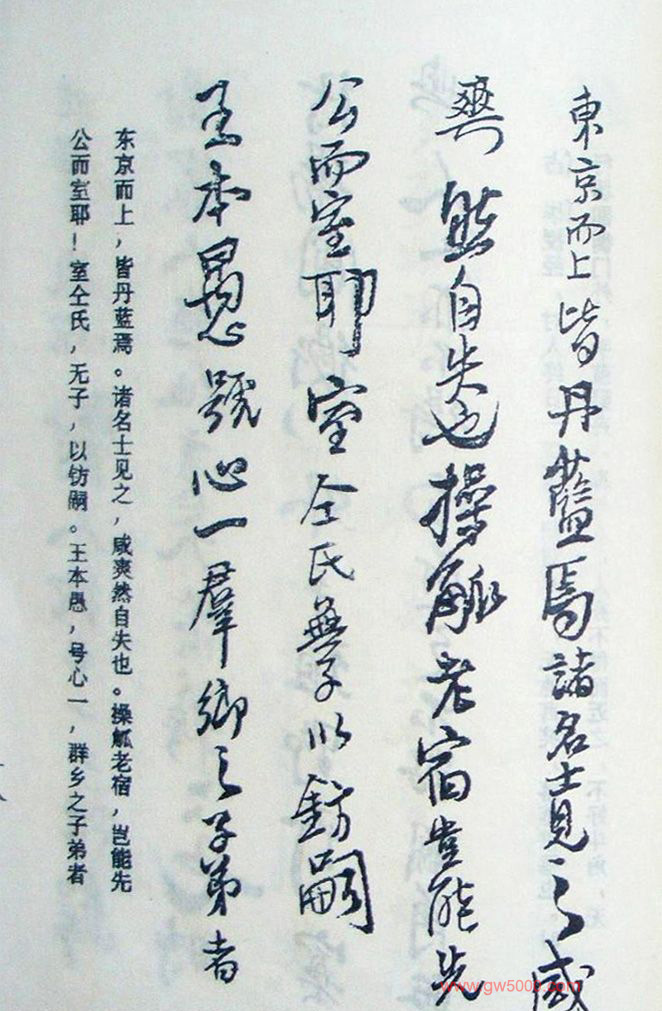 東京而上皆丹藍焉諸名士見之咸
爽然自失也操觚老宿豈能先
公而室耶室仝氏無子以鈁嗣
王本愚號心一群鄉之子弟者
东京而上，皆丹蓝焉。诸名士见之，咸爽然自失也。操觚老宿，岂能先
公而室耶！室仝氏，无子，以钫嗣。王本愚，号心一，群乡之子弟者
www.gw500g.com